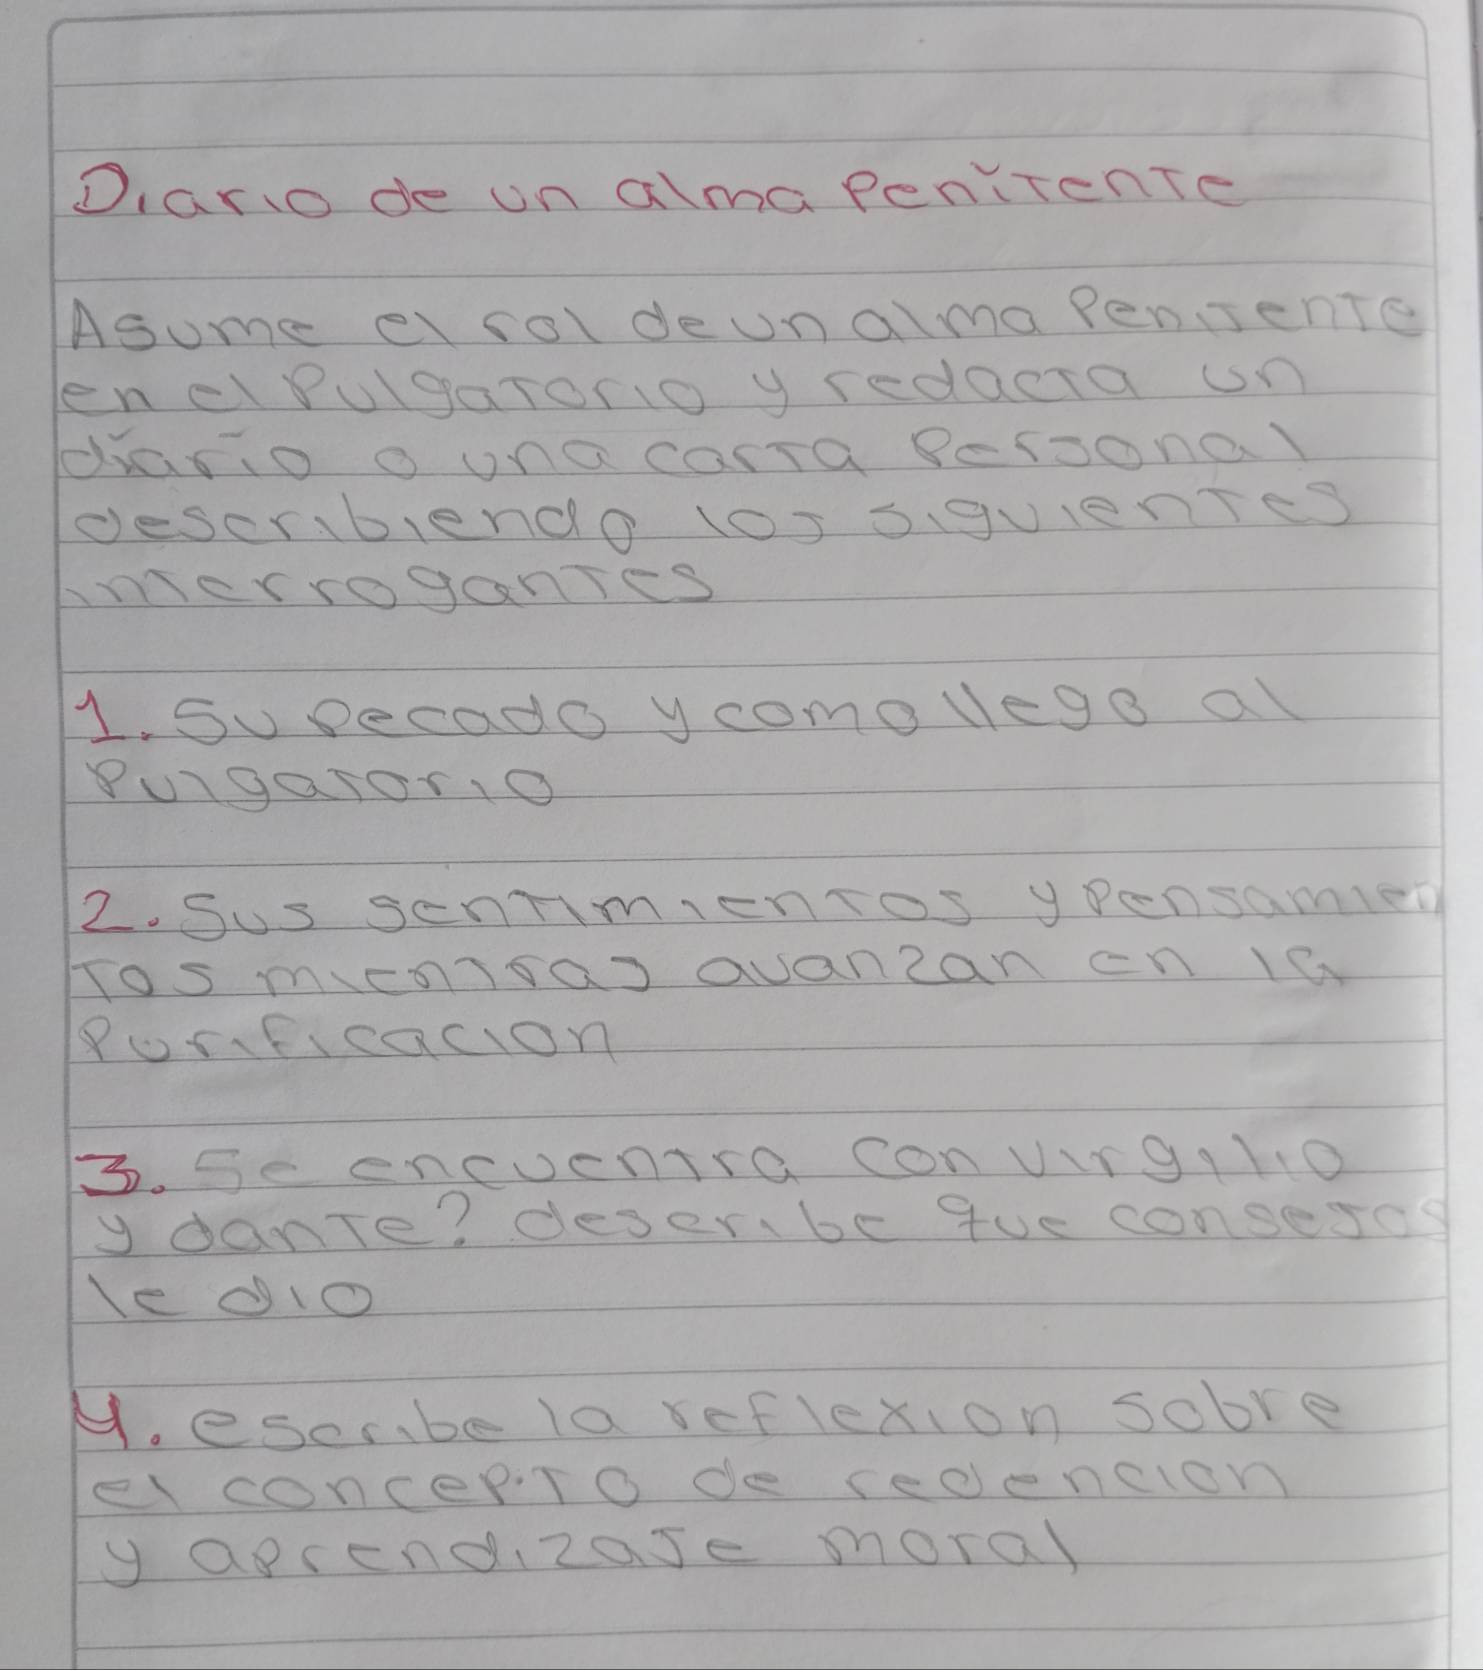 Diario de un alma Penitente
Asume el rol de un alma Penitente
en el Pulgatorio y redacta un
diario o una carta Personal
describiendo los siguientes
interrogantes
1. Su Pecado y como llego al
Pulgatorio
2. Sus sentimientos y Pensamien
tos mientras avanzan en la
Purificacion
3. Se encuentra con virgilio
y dante? describe que consejos
le dio
4. escribe la reflexion sobre
el concepto de redencion
y aprendizaje moral